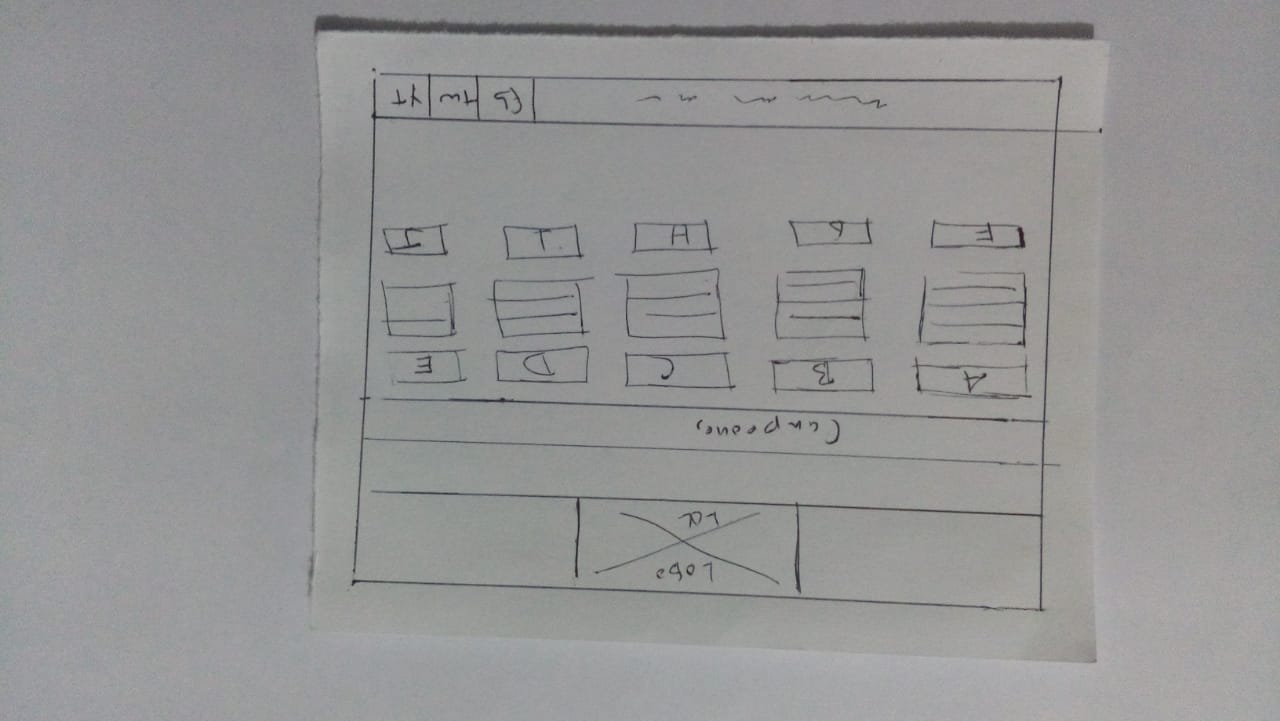 Lobo
La
Campeones
A B C D E
F G H I J
fb tw YT